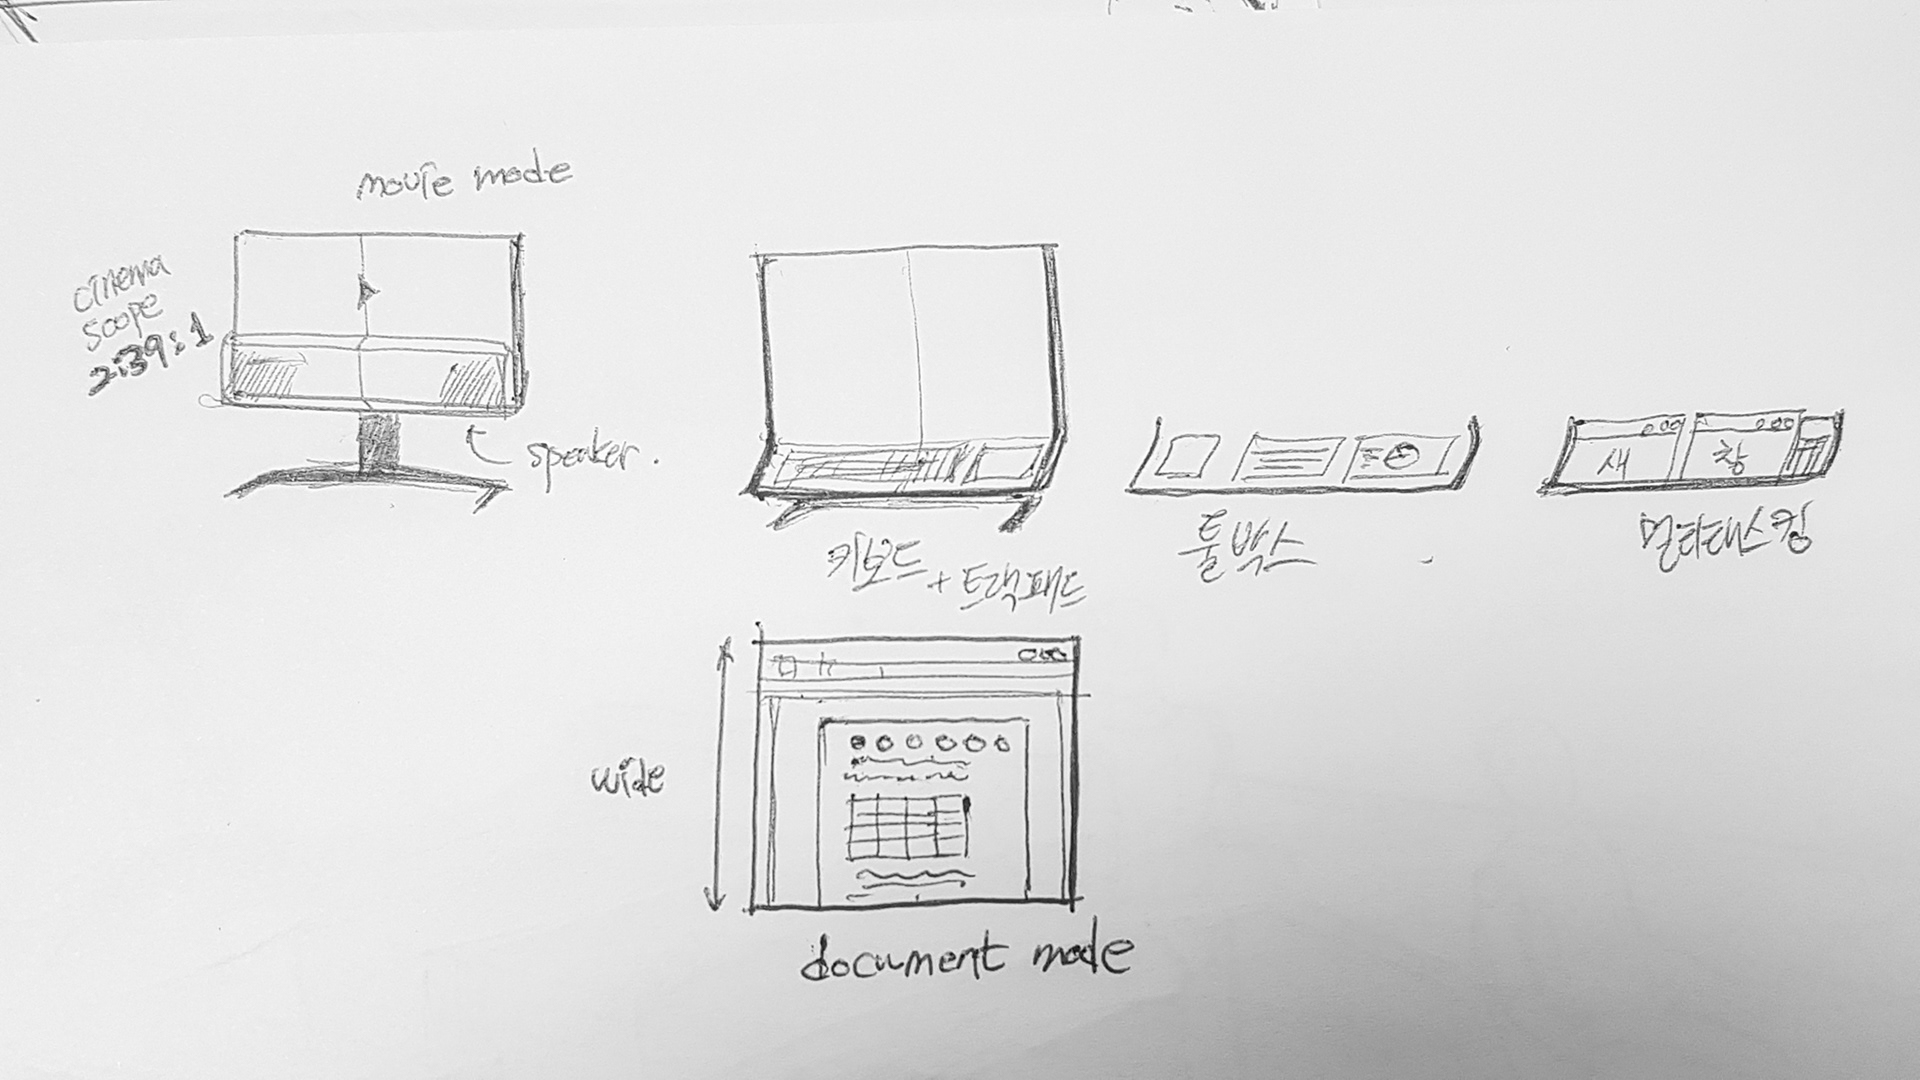 movie mode
cinema
scope
2:39:1
speaker.
키보드
+ 트랙패드
툴박스
새 창
멀티태스킹
wide
document mode